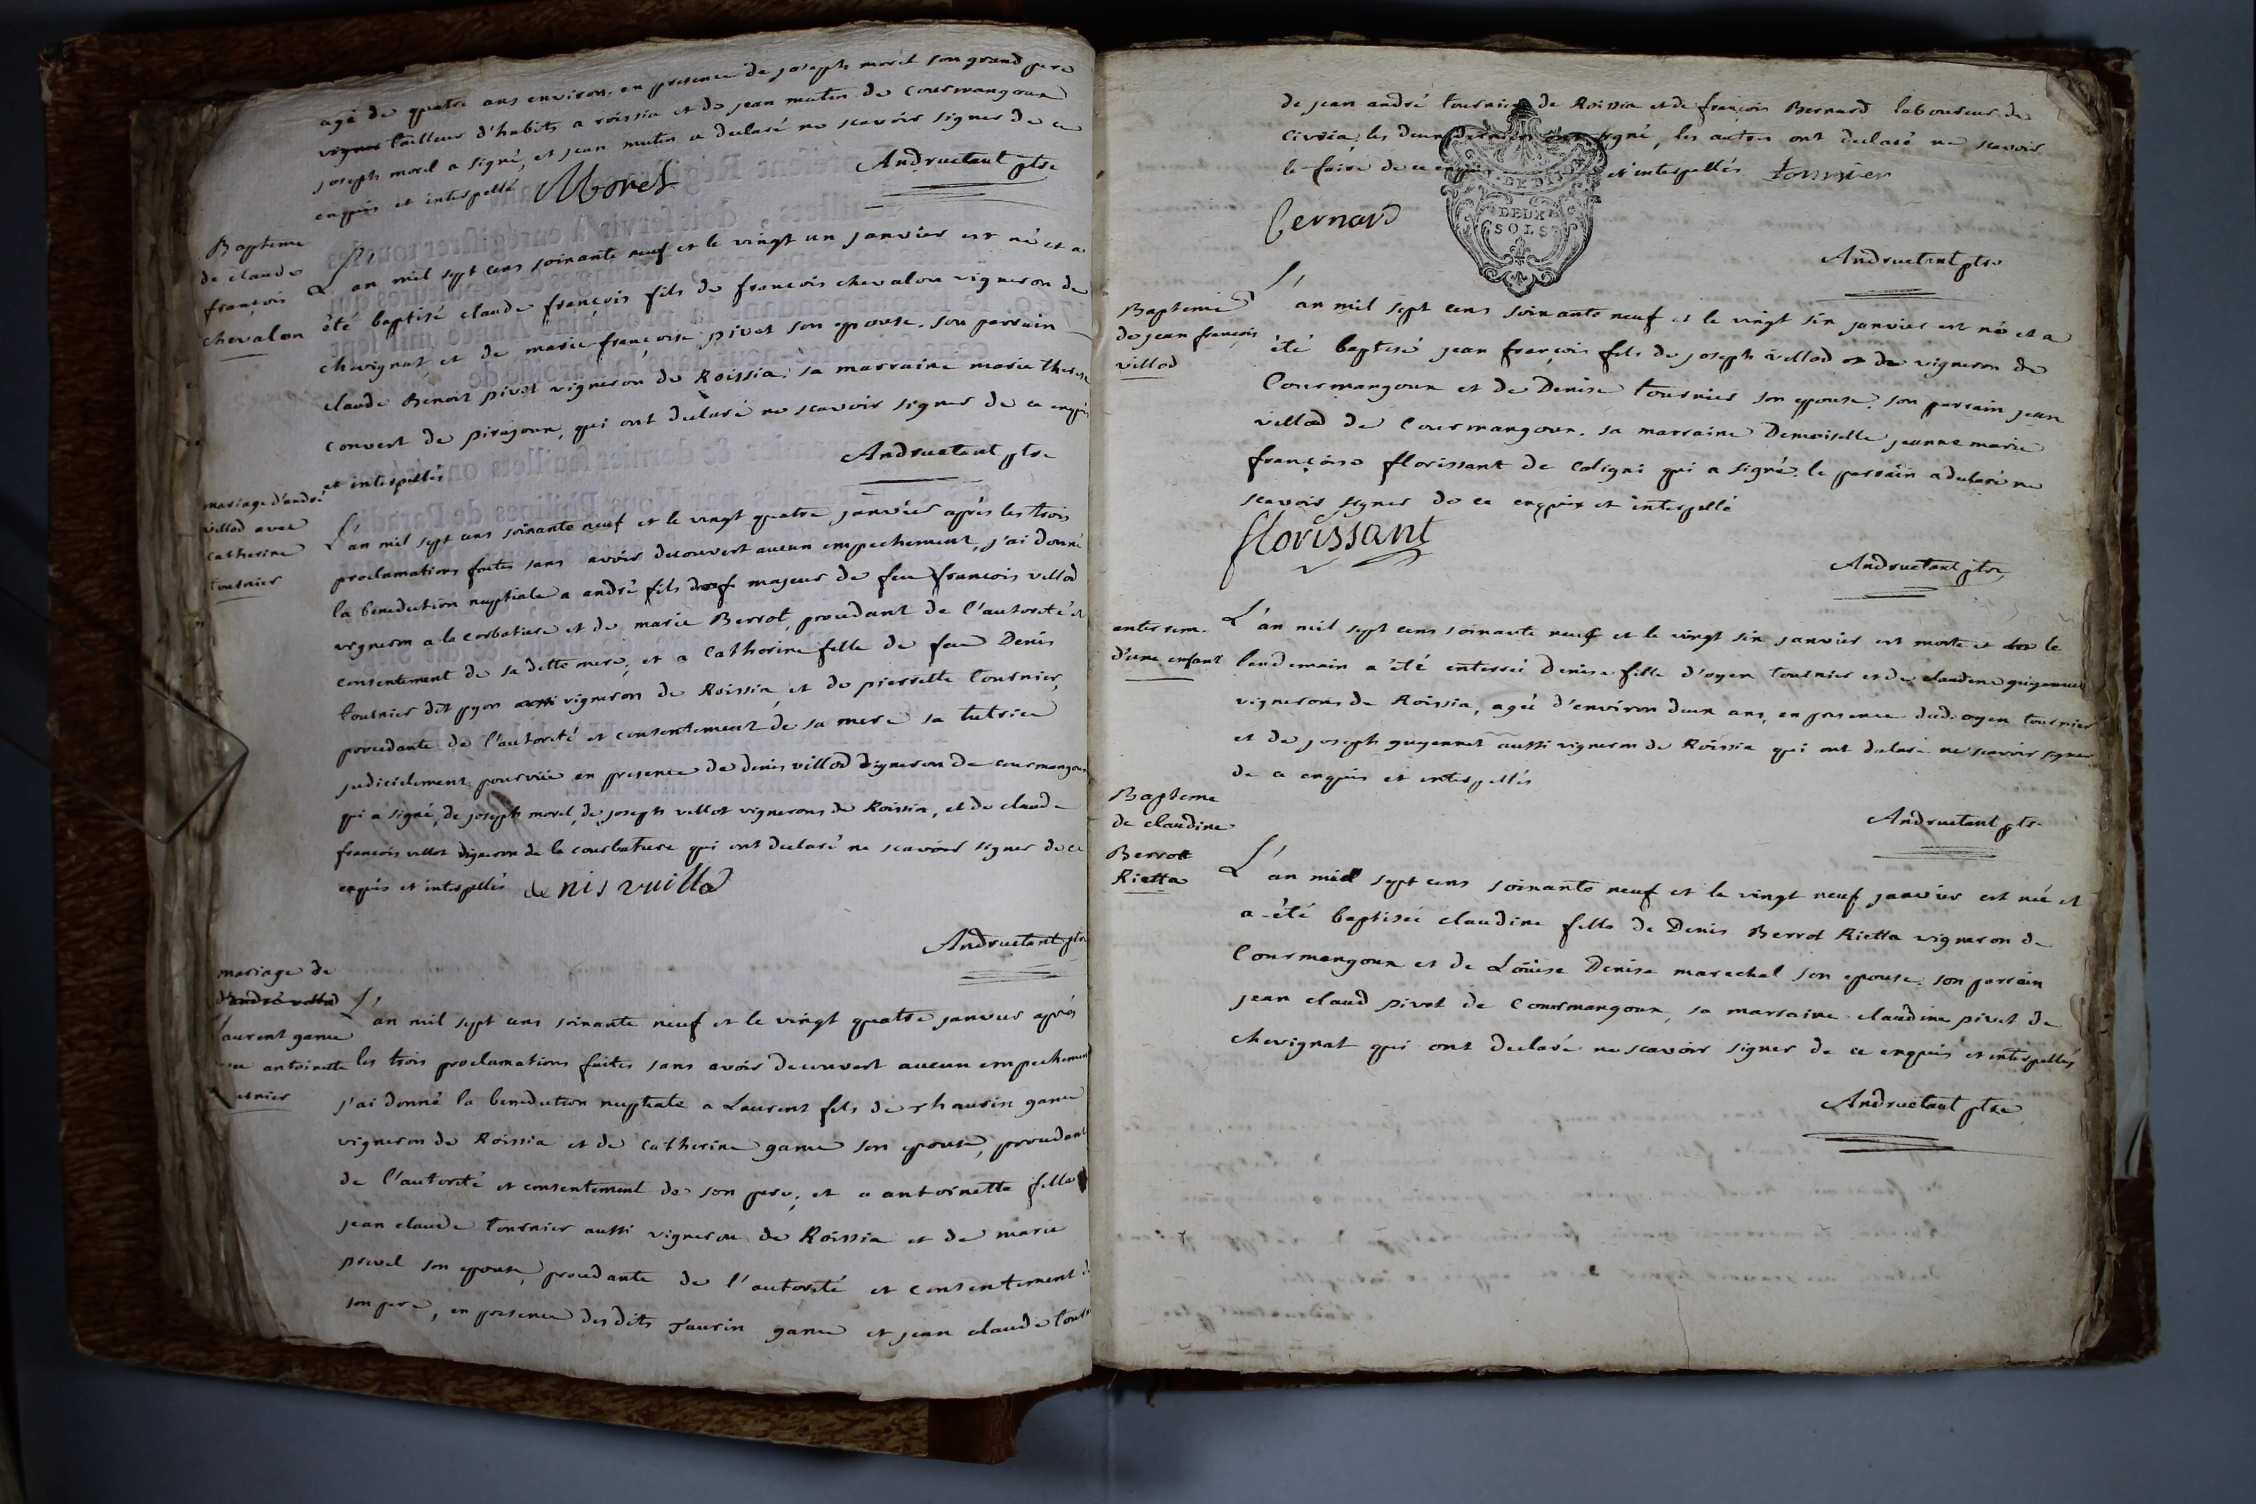 agé de quatre ans environ, en presence de joseph morel son grand pere
tailleur d'habits a roissia et de jean mutin de Courmangoux
joseph morel a signé, et jean mutin a declaré ne scavoir signer de ce
enquis et interpellé Morel
Andruetant ptre
Bapteme
de claude
françois
chevalon
L'an mil sept cens soixante neuf et le vingt un janvier est né et a
été baptisé claude françois fils de françois chevalon vigneron de
chevignat et de marie françoise pivet son epouse. son parrain
claude Benoit pivet vigneron de Roissia. sa marraine marie therese
convert de pirajoux, qui ont declaré ne scavoir signer de ce enquis
et interpellés
Andruetant ptre
mariage d'andré
villod avec
catherine
tournier
L'an mil sept cens soixante neuf et le vingt quatre janvier après les trois
proclamations faites sans avoir decouvert aucun empechement, j'ai donné
la benediction nuptiale a andré fils majeur de feu françois villod
vigneron a la corbature et de marie Berrot, procedant de l'autorité et
consentement de sa dette mere, et a Catherine fille de feu Denis
tournier dit pyon vigneron de Roissia et de pierrette tournier,
procedante de l'autorité et consentement de sa mere sa tutrice
judicielement pourvüe en presence de denis villod vigneron de courmangoux
qui a signé, de joseph morel, de joseph villot vignerons de Roissia, et de claude
françois villot vigneron de la courbature qui ont declaré ne scavoir signer de ce
enquis et interpellés denis vuillod
Andruetant ptre
mariage de
d'andré villod
Laurent game
antoinette
L'an mil sept cens soixante neuf et le vingt quatre janvier après
les trois proclamations faites sans avoir decouvert aucun empechement
j'ai donné la benediction nuptiale a Laurent fils de thaurin game
vigneron de Roissia et de Catherine game son epouse, procedant
de l'autorité et consentement de son pere, et a antoinette fille
jean claude tournier aussi vigneron de Roissia et de marie
pivet son epouse, procedante de l'autorité et consentement de
son pere, en presence desdits Taurin game et jean claude
de jean andré tournier de Roissia et de françois Bernard laboureur de
Civria, les deux derniers ont signé, les autres ont declaré ne scavoir
le faire de ce enquis et interpellés tournier
Bernard
DEUX
SOLS
Andruetant ptre
Bapteme
de jean françois
villod
L'an mil sept cens soixante neuf et le vingt six janvier est né et a
été baptisé jean françois fils de joseph villod vigneron de
Courmangoux et de Denise tournier son epouse. son parrain jean
villod de Courmangoux. sa marraine Demoiselle jeanne marie
françoise florissant de Coligni qui a signé. le parrain a declaré ne
scavoir signer de ce enquis et interpellé
florissant
Andruetant ptre
enterrem.
d'une enfant
L'an mil sept cens soixante neuf et le vingt six janvier est morte et le
lendemain a été enterrée Denise fille d'oyen tournier et de claudine guyennet
vignerons de Roissia, agée d'environ deux ans, en presence dudi oyen tournier
et de joseph guyennet aussi vigneron de Roissia qui ont declaré ne scavoir signer
de ce enquis et interpellés
Andruetant ptre
Bapteme
de claudine
Berrot
Rietta
L'an mil sept cens soixante neuf et le vingt neuf janvier est née et
a été baptisée claudine fille de Denis Berrot Rietta vigneron de
Courmangoux et de Loüise Denise marechal son epouse. son parrain
jean claud pivet de Courmangoux, sa marraine claudine pivet de
chevignat qui ont declaré ne scavoir signer de ce enquis et interpellés
Andruetant ptre